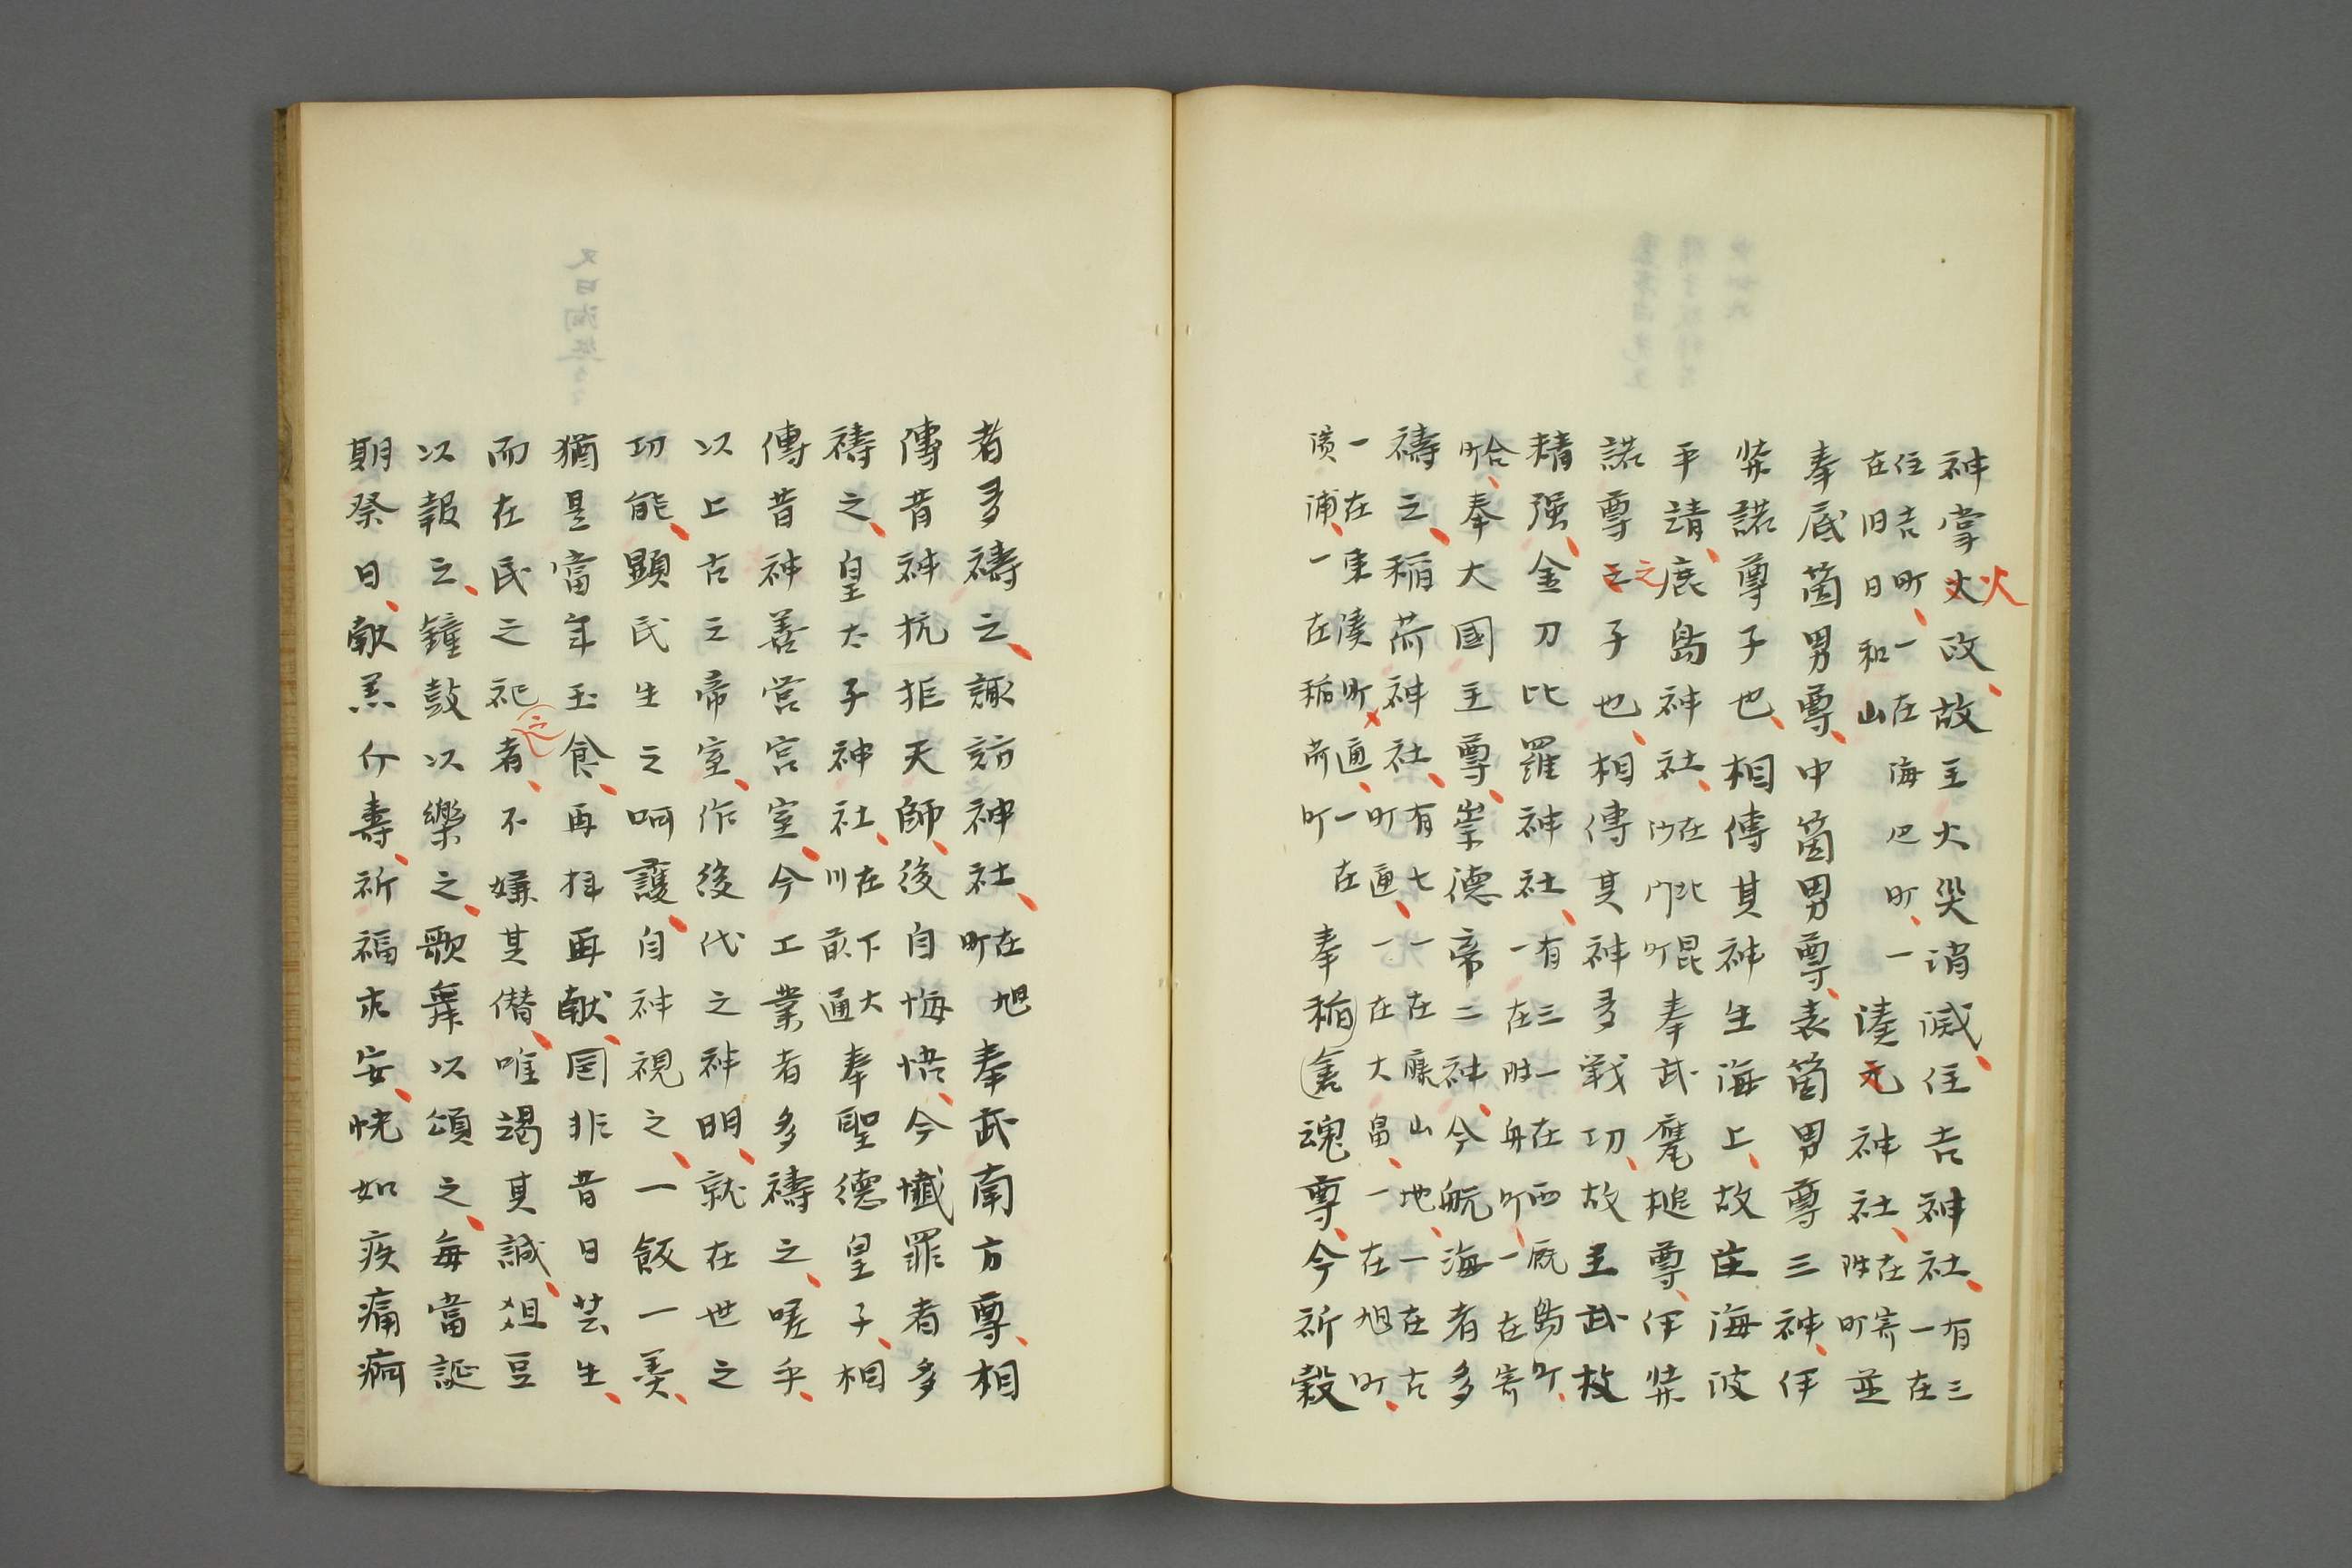 神掌火政故主火災消滅住吉神社有三一在
住吉町一在海辺町一
在旧日和山湊元神社在寄附町並
奉底箇男尊中箇男尊表箇男尊三神伊
弉諾尊子也相傳其神生海上故主海波
平請鹿島神社在北昆沙門町奉武甕槌尊伊弉
諾尊之子也相傳其神多戦功故主武故
精强金刀比羅神社有三一在西厩島町一在附舟町一在寄
合町奉大國主尊崇德帝二神今航海者多
禱之稲荷神社有七一在廉山地一在古町通一在大畠一在旭町
一在東湊町通一在横浦一在稲荷町奉稲倉魂尊今祈穀
者多禱之諏訪神社在旭町奉武南方尊相
傳昔神抗拒天師後自悔悟今懺罪者多
禱之皇太子神社在下大川前通奉聖德皇子相
傳昔神善営宮室今工業者多禱之嗟乎
以上古之帝室作後代之神明就在世之
功能顯民生之呵護自神視之一飯一羮
猶是當年玉食再拝再献固非昔日芸生
而在民之祀之者不嫌其僭唯竭其誠俎豆
以報之鐘鼓以樂之歌舞以頌之每當誕
期祭日献羔介壽祈福求安恍如疾痛痾